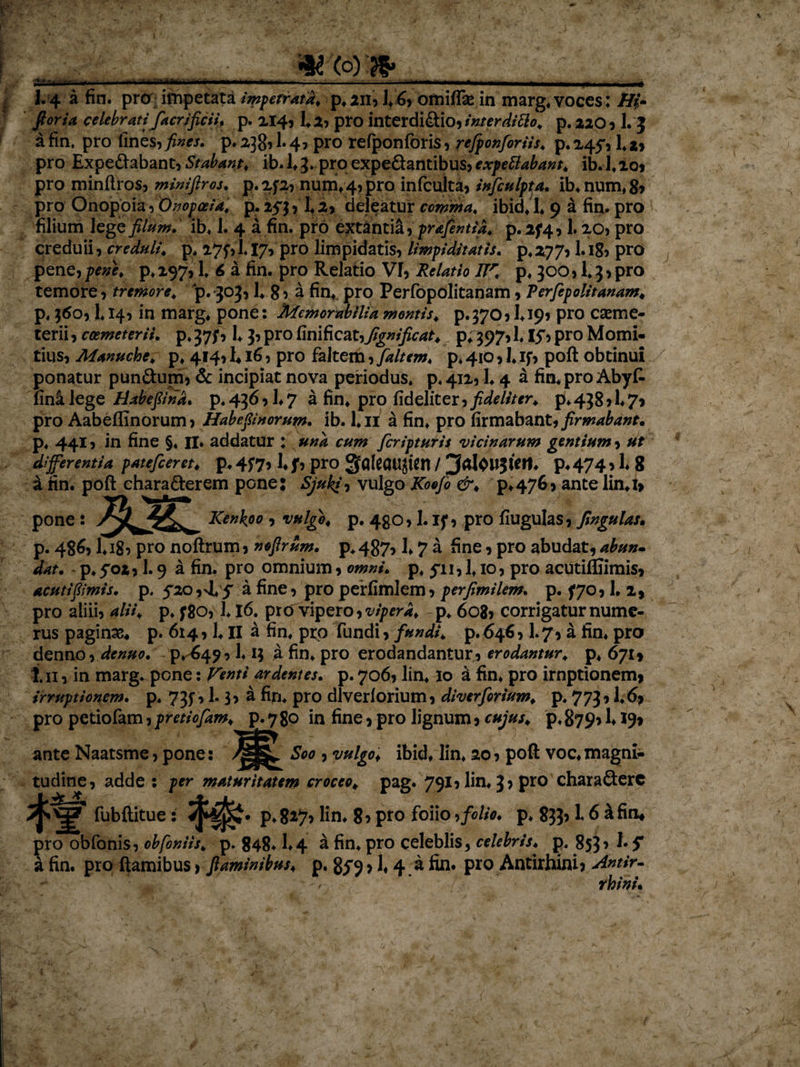 (o)
l. 4 à fin. pro impetata impetratâ. p. 211, l. 6, omissæ in marg. voces: Hi-
storia celebrati sacrificii. p. 214, l. 2, pro interdictio, interdicto. p. 220, l. 3
à fin. pro fines, fines. p. 238, l. 4, pro responsoris, responsoriis. p. 245, l. 2,
pro Expectabant, Stabant. ib. l. 3. pro expectantibus, expectabant. ib. l. 10,
pro minstros, ministros. p. 252, num. 4, pro insculta, insculpta. ib. num. 8,
pro Onopoia, Onopœia. p. 253, l. 2, deleatur comma. ibid. l. 9 à fin. pro
filium lege filum. ib. l. 4 à fin. pro extantiâ, præsentiâ. p. 254, l. 20, pro
creduii, creduli. p. 275, l. 17, pro limpidatis, limpiditatis. p. 277, l. 18, pro
pene, penè. p. 297, l. 6 à fin. pro Relatio VI, Relatio IV. p. 300, l. 3, pro
temore, tremore. p. 303, l. 8, à fin. pro Persopolitanam, Persepolitanam.
p. 360, l. 14, in marg. pone: Memorabilia montis. p. 370, l. 19, pro cæme-
terii, cœmeterii. p. 375, l. 3, pro sinificat, significat. p. 397, l. 15, pro Momi-
tius, Manuche. p. 414, l. 16, pro faltem, saltem. p. 410, l. 15, post obtinui
ponatur punctum, & incipiat nova periodus. p. 412, l. 4 à fin. pro Abys-
sinâ lege Habessinâ. p. 436, l. 7 à fin. pro fideliter, fideliter. p. 438, l. 7,
pro Aabessinorum, Habessinorum. ib. l. 11 à fin. pro firmabant, firmabant.
p. 441, in fine §. 11. addatur : unà cum scripturis vicinarum gentium, ut
differentia patesceret. p. 457, l. 5, pro Faleausien / Jalousien. p. 474, l. 8
à fin. post characterem pone: Sjuki, vulgo Kooso &. p. 476, ante lin. 1,
pone : Kenkoo, vulgò. p. 480, l. 15, pro fiugulas, singulas.
p. 486, l. 18, pro nostrum, nostrûm. p. 487, l. 7 à fine, pro abudat, abun-
dat. p. 502, l. 9 à fin. pro omnium, omni. p. 511, l. 10, pro acutiffiimis,
acutissimis. p. 520, l. 5 à fine, pro persimlem, persimilem. p. 570, l. 2,
pro aliii, alii. p. 580, l. 16. pro vipero, viperâ. p. 608, corrigatur nume-
rus paginæ. p. 614, l. 11 à fin. pro fundi, fundi. p. 646, l. 7, à fin. pro
denno, denuo. p. 649, l. 13 à fin. pro erodandantur, erodantur. p. 671,
l. 11, in marg. pone: Venti ardentes. p. 706, lin. 10 à fin. pro irnptionem,
irruptionem. p. 735, l. 3, à fin. pro dlversorium, diversorium. p. 773, l. 6,
pro petiosam, pretiosam. p. 780 in fine, pro lignum, cujus. p. 879, l. 19,
ante Naatsme, pone: Soo, vulgo. ibid. lin. 20, post voc. magni-
tudine, adde : per maturitatem croceo. pag. 791, lin. 3, pro charactere
substitue: p. 827, lin. 8, pro foiio, folio. p. 833, l. 6 à fin.
pro obsonis, obsoniis. p. 848. l. 4 à fin. pro celeblis, celebris. p. 853, l. 5
à fin. pro stamibus, staminibus. p. 859, l. 4 à fin. pro Antirhini, Antir-
rhini.